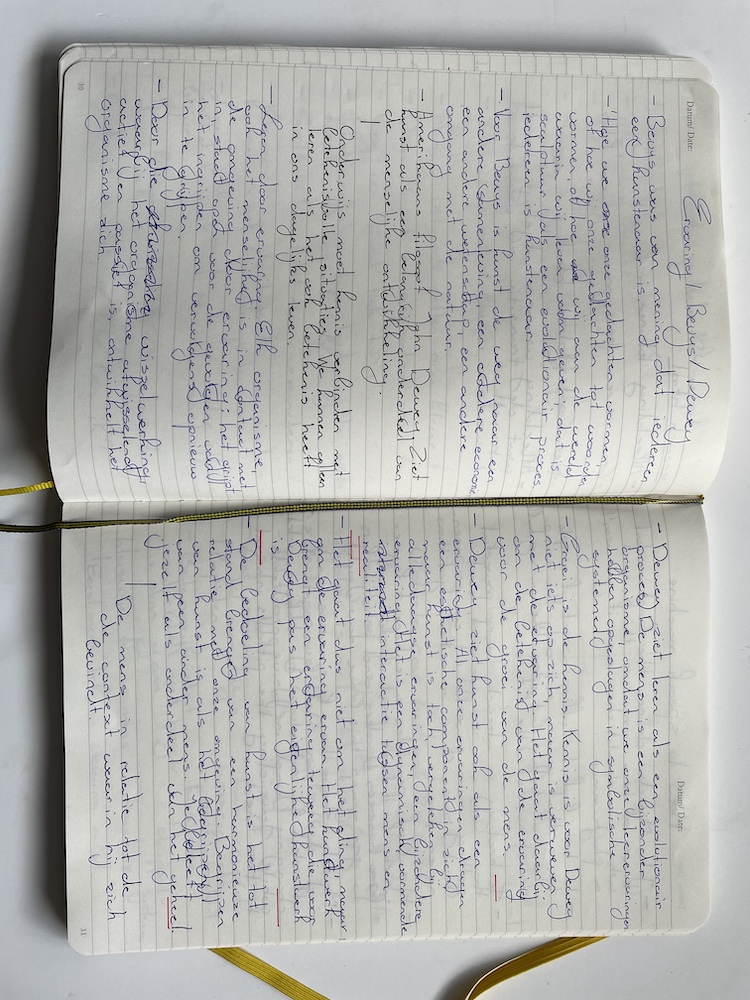 Datum/ Date:
Ervaring / Beuys / Dewey
- Beuys was van mening dat iedereen
een kunstenaar is.
- 'Hoe we onze gedachten vormen,
of hoe wij onze gedachten tot woorden
vormen, of hoe wij aan de wereld
waarin wij leven vorm geven; dat is
sculptuur als een evolutionair proces
iedereen is kunstenaar.'
- Voor Beuys is kunst de weg naar een
andere samenleving, een andere economie
een andere wetenschap, een andere
omgang met de natuur.
- Amerikaans filosoof John Dewey. Ziet
kunst als een belangrijk onderdeel van
de menselijke ontwikkeling.
Onderwijs moet kennis verbinden met
betekenisvolle situaties. We kunnen alleen
leren als het ook betekenis heeft
in ons dagelijks leven.
- Leren door ervaring. Elk organisme,
ook het menselijke is in contact met
de omgeving door ervaring: het grijpt
in, staat open voor de gevolgen van
het ingrijpen om vervolgens opnieuw
in te grijpen.
- Door die wisselwerking,
waarbij het organisme afwisselend
actief en passief is, ontwikkelt het
organisme zich.
30
Datum/ Date:
- Dewey ziet leren als een evolutionair
proces. De mens is een bijzonder
organisme, omdat we onze leerervaringen
hebben opgeslagen in symbolische
systemen.
- Groei is de kennis. Kennis is voor Dewey
niet iets op zich, maar is verweven
met de ervaring. Het gaat daarbij
om de betekenis van de ervaring
voor de groei van de mens.
- Dewey ziet kunst ook als een
ervaring. Al onze ervaringen dragen
een esthetische component in zich,
maar kunst is toch, vergeleken bij
alledaagse ervaringen, een bijzondere
ervaring. Het is een dynamisch, vormende
interactie tussen mens en
realiteit.
- Het gaat dus niet om het ding, maar
om de ervaring ervan. Het kunstwerk
brengt een ervaring teweeg die voor
Dewey pas het eigenlijke kunstwerk
is.
- De bedoeling van kunst is het tot
stand brengen van een harmonieuze
relatie met onze omgeving. Begrijpen
van kunst is als het begrijpen
van een ander mens. Je beleeft
jezelf als onderdeel van het geheel
De mens in relatie tot de
de context waarin hij zich
bevindt.
31